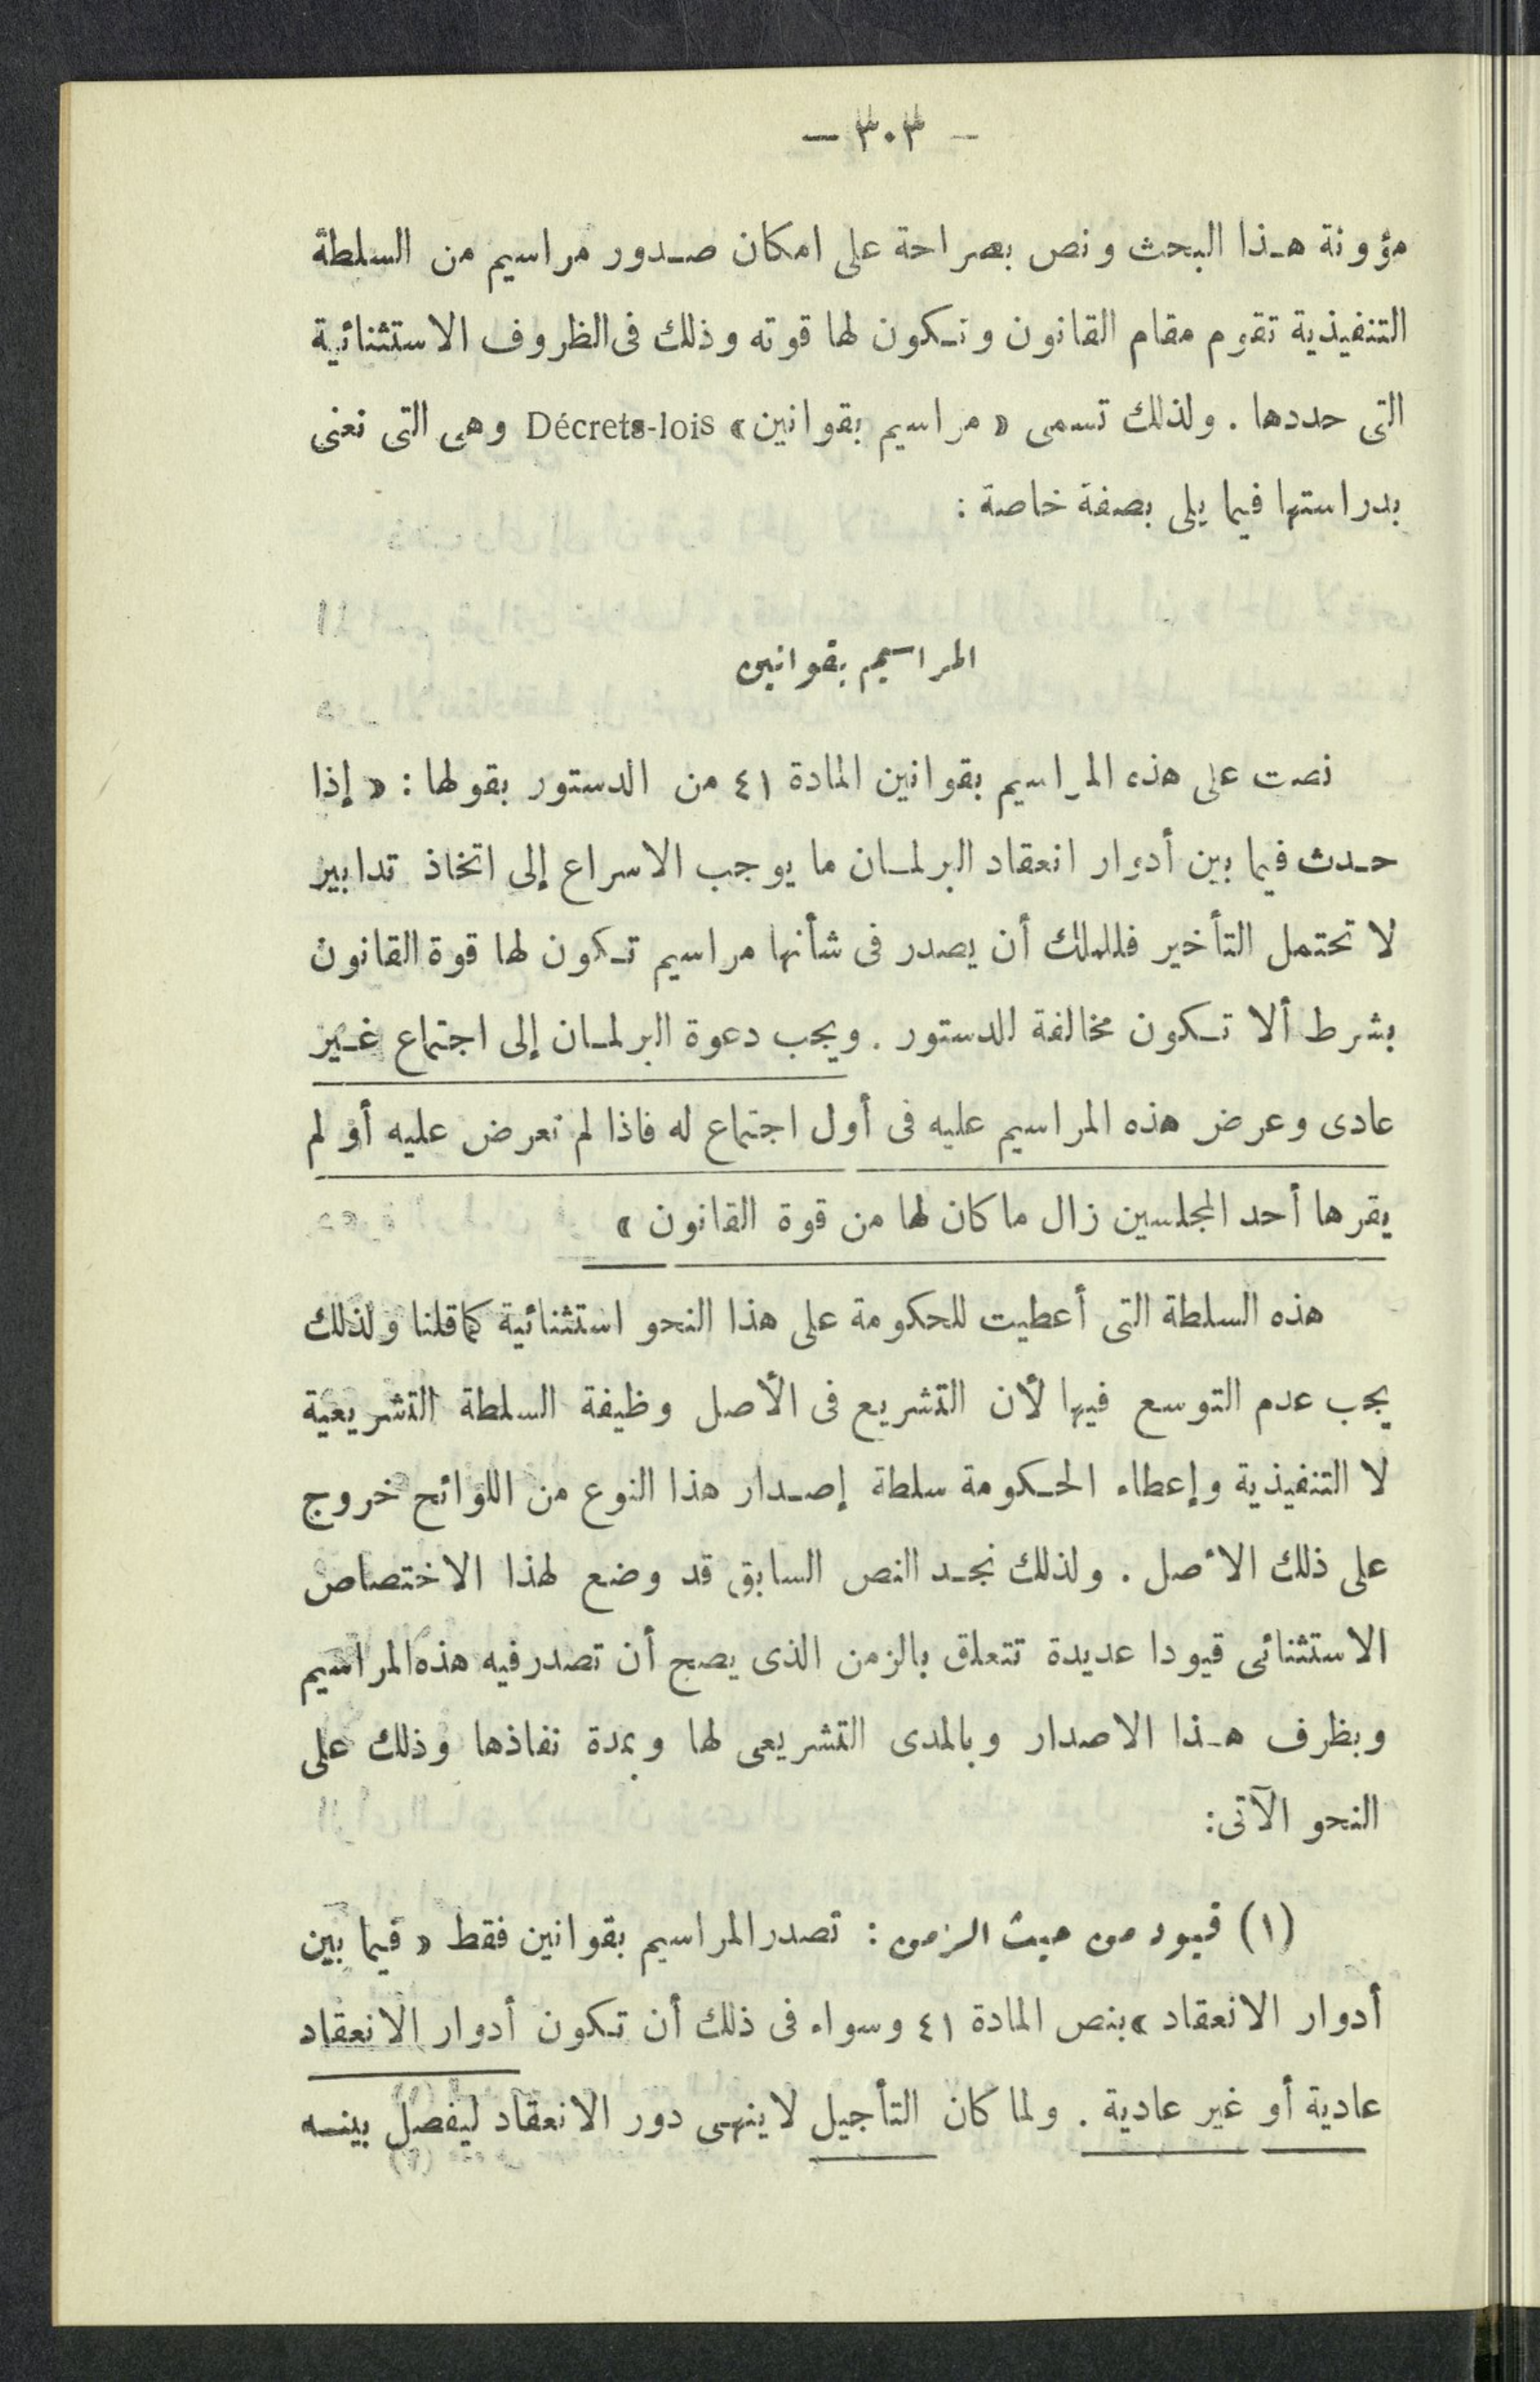 — ٣٠٣ —
مؤونة هذا البحث ونص بصراحة على امكان صدور مراسيم من السلطة
التنفيذية تقوم مقام القانون وتكون لها قوته وذلك فى الظروف الاستثنائية
التى حددها . ولذلك تسمى « مراسيم بقوانين » Décrets-lois وهى التى نعنى
بدراستها فيما يلى بصفة خاصة :
المراسيم بقوانين
نصت على هذه المراسيم بقوانين المادة ٤١ من الدستور بقولها : « إذا
حدث فيما بين أدوار انعقاد البرلمان ما يوجب الاسراع إلى اتخاذ تدابير
لا تحتمل التأخير فللملك أن يصدر فى شأنها مراسيم تكون لها قوة القانون
بشرط ألا تكون مخالفة للدستور . ويجب دعوة البرلمان إلى اجتماع غير
عادى وعرض هذه المراسيم عليه فى أول اجتماع له فاذا لم تعرض عليه أو لم
يقرها أحد المجلسين زال ما كان لها من قوة القانون »
هذه السلطة التى أعطيت للحكومة على هذا النحو استثنائية كما قلنا ولذلك
يجب عدم التوسع فيها لأن التشريع فى الأصل وظيفة السلطة التشريعية
لا التنفيذية وإعطاء الحكومة سلطة إصدار هذا النوع من اللوائح خروج
على ذلك الأصل . ولذلك نجد النص السابق قد وضع لهذا الاختصاص
الاستثنائى قيودا عديدة تتعلق بالزمن الذى يصح أن تصدر فيه هذه المراسيم
وبظرف هذا الاصدار وبالمدى التشريعى لها وبمدة نفاذها وذلك على
النحو الآتى:
(١) قيود من حيث الزمن : تصدر المراسيم بقوانين فقط « فيما بين
أدوار الانعقاد » بنص المادة ٤١ وسواء فى ذلك أن تكون أدوار الانعقاد
عادية أو غير عادية . ولما كان التأجيل لا ينهى دور الانعقاد ليفصل بينه